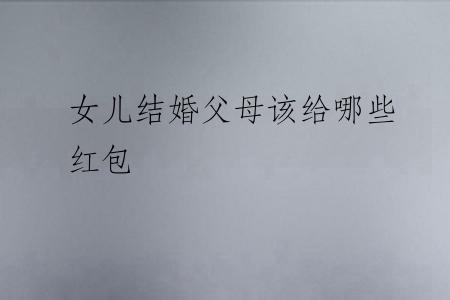 女儿结婚父母该给哪些
红包